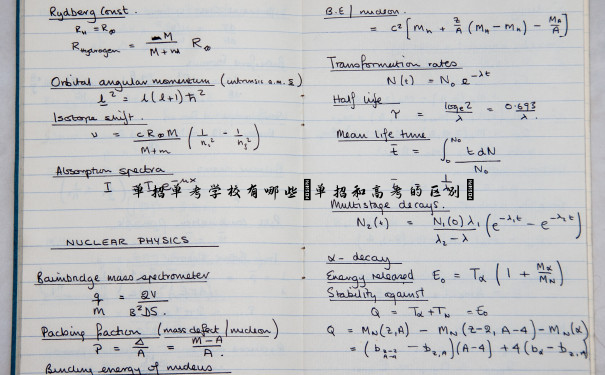 Rydberg Const.
R_H = R_∞
R_Hydrogen = M / (M + m) R_∞
Orbital angular momentum (intrinsic a.m. s)
l² = l(l+1)ħ²
Isotope shift.
ν = c R_∞ M / (M+m) (1/n₁² - 1/n₂²)
Absorption spectra
I I e^-μx
NUCLEAR PHYSICS
Bainbridge mass spectrometer
q/m = 2V / B²DS.
Packing fraction (mass defect/nucleon)
P = Δ/A = (M-A)/A.
Binding energy of nucleus
单招单考学校有哪些 单招和高考的区别
B.E / nucleon.
= c² [M_n + Z/A (M_H - M_n) - M_A/A]
Transformation rates
N(t) = N₀ e^-λt
Half life
τ = log_e 2 / λ = 0.693 / λ.
Mean life time
t̄ = ∫₀^N₀ t dN / N₀
Multistage decays.
N₂(t) = N₁(0) λ₁ / (λ₂ - λ) (e^-λ₁t - e^-λ₂t)
α - decay
Energy released E₀ = T_α (1 + M_α/M_N)
Stability against
Q = T_α + T_N = E₀
Q = M_N(Z,A) - M_N(Z-2, A-4) - M_N(α)